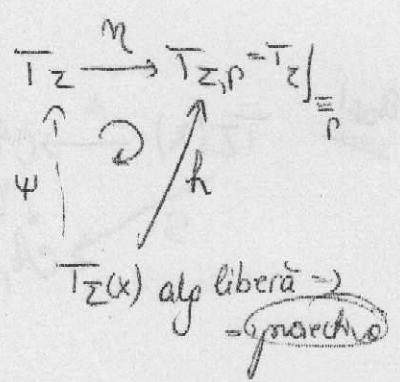 η
T_Σ → T_{Σ,Γ} = T_Σ/≡_Γ
ψ h
T_Σ(x) alg liberă →
- proiectivă